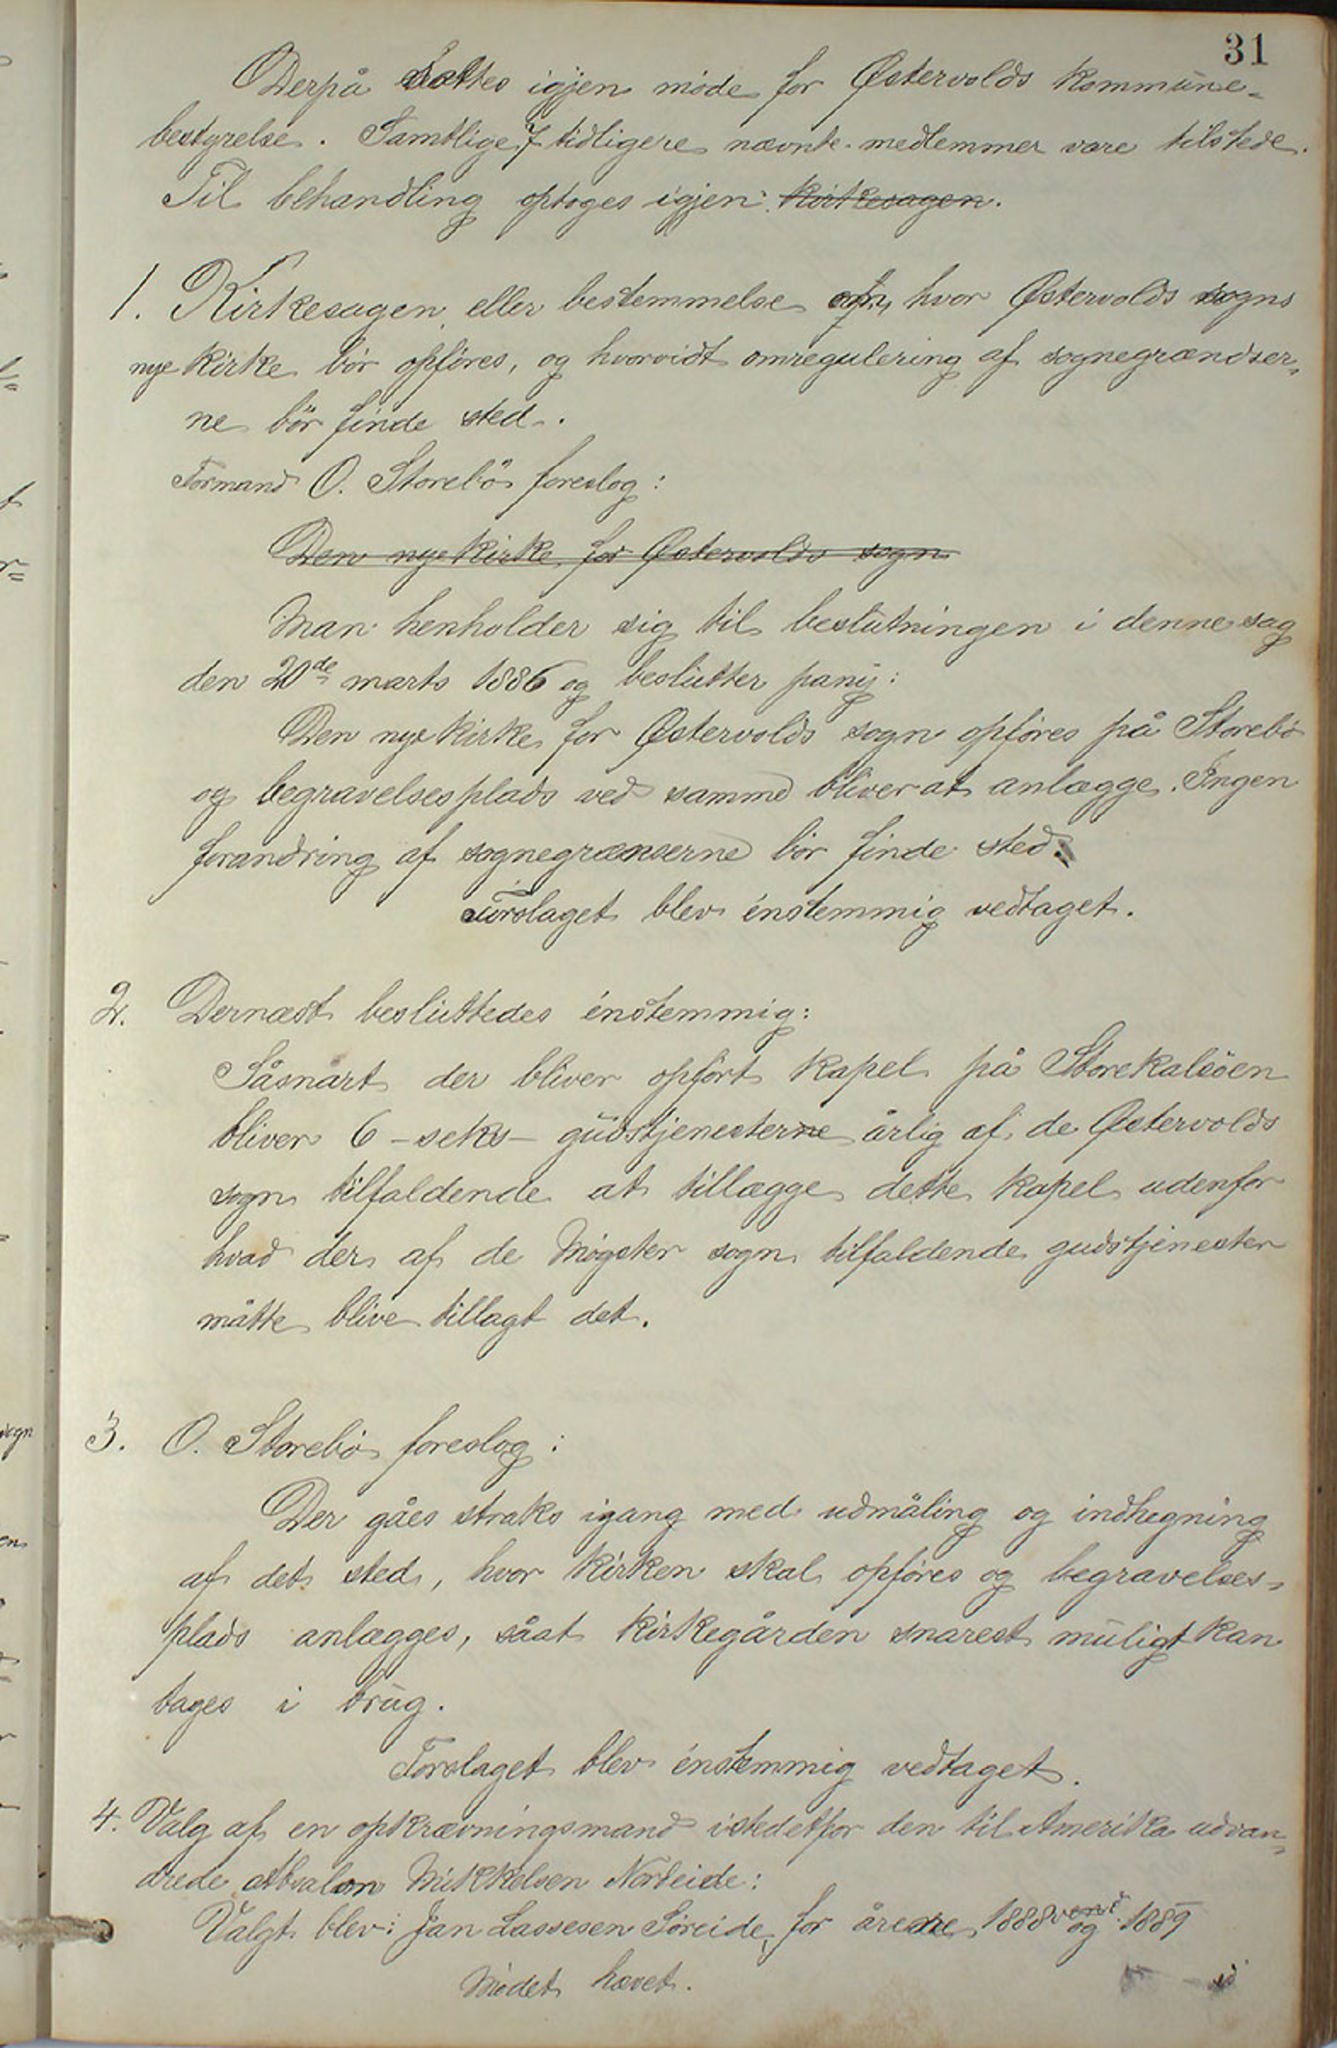 31
Derpå sattes igjen møde for Østervolds kommune-
bestyrelse. Samtlige 7 tidligere nævnte medlemmer vare tilstede.
Til behandling optoges igjen: kirkesagen.
1. Kirkesagen, eller bestemmelse om, hvor Østervolds sogns
nye kirke bör opföres, og hvorvidt omregulering af sognegrændser-
ne bör finde sted.
Formand O. Storebö foreslog:
Den nye kirke for Østervolds sogn
Man henholder sig til beslutningen i denne sag
den 20de marts 1886 og beslutter pany:
Den nye kirke for Østervolds sogn opföres på Storebö
og begravelsesplads ved samme bliver at anlægge. Ingen
forandring af sognegrænserne bör finde sted.
Forslaget blev énstemmig vedtaget.
2. Dernæst besluttedes énstemmig:
Såsnart der bliver opfört kapel på Storekalsöen
bliver 6 - seks - gudstjenesterne årlig af de Østervolds
sogn tilfaldende at tillægge dette kapel udenfor
hvad der af de Møgster sogn tilfaldende gudstjenester
måtte blive tillagt det.
3. O. Storebö foreslog:
Der gåes straks igang med udmåling og indhegning
af det sted, hvor kirken skal opföres og begravelses-
plads anlægges, såat kirkegården snarest muligt kan
tages i brug.
Forslaget blev énstemmig vedtaget.
4. Valg af en opkrævningsmand istedetfor den til Amerika udvan-
drede Absalon Mikkelsen Nordeide:
Valgt blev: Jan Lassesen Söreide, for årene 1888 og 1889
Mödet hævet.